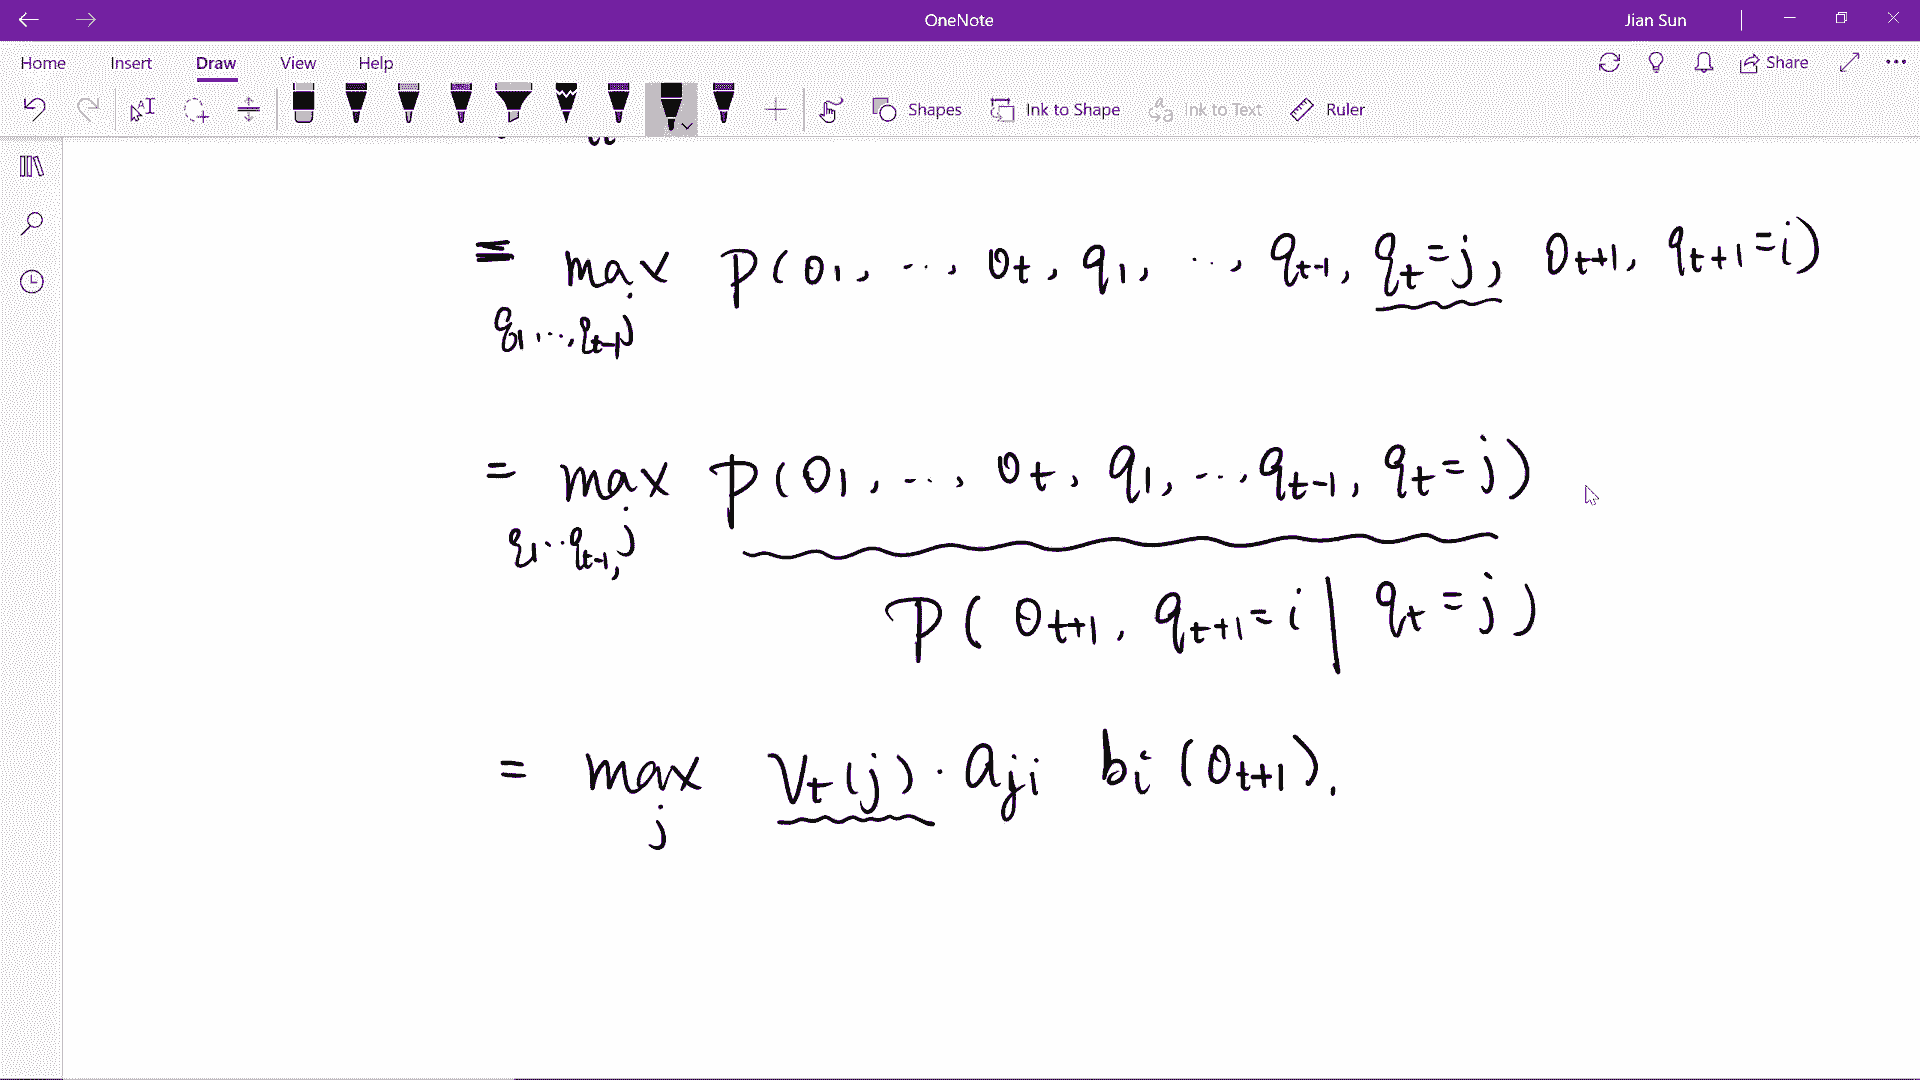 OneNote
Jian Sun
Home Insert Draw View Help
Share
Shapes Ink to Shape Ink to Text Ruler
= max P(O1, ..., Ot, q1, ..., qt-1, qt=j, Ot+1, qt+1=i)
q1, ..., qt-1, j
= max P(O1, ..., Ot, q1, ..., qt-1, qt=j)
q1 .. qt-1, j
P(Ot+1, qt+1=i | qt=j)
= max Vt(j) · aji bi(Ot+1).
j